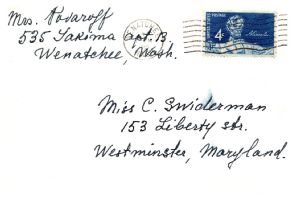 Mrs. Rodaroff
535 Yakima apt. B
Wenatchee, Wash.
WENATCHEE
POSTAGE
4¢
Miss C. Swiderman
153 Liberty str.
Westminster, Maryland.